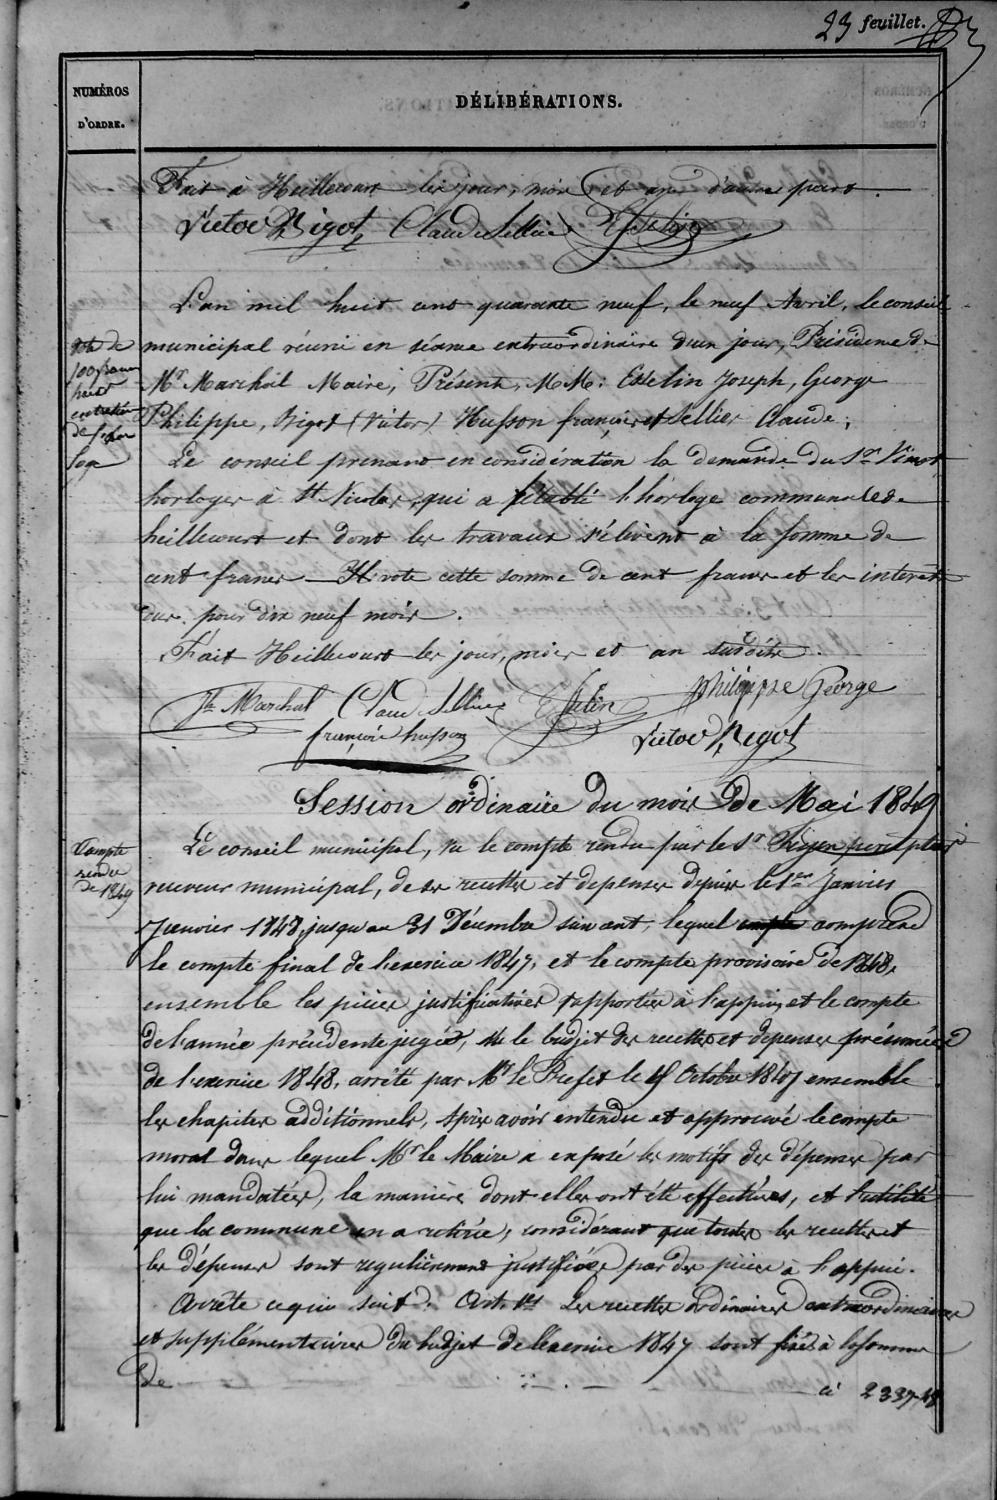 23 feuillet.
NUMÉROS
D'ORDRE.
DÉLIBÉRATIONS.
Fait à Heillecourt les jour, mois et an d'autre part.
Victor Bigot Claude Sellier Estelin
L'an mil huit cent quarante neuf, le neuf Avril, le conseil
municipal réuni en séance extraordinaire d'un jour, Présidence de
Mr Marchal Maire, Présents, MM: Estelin Joseph, George
Philippe, Bigot (Victor) Husson françois et Sellier Claude;
vote de
100 francs
pour
entretien
de l'hor
loge
Le conseil prenant en considération la demande du Sr
horloger à St Nicolas, qui a rétabli l'horloge communale de
heillecourt et dont les travaux s'élèvent à la somme de
cent francs — Il vote cette somme de cent francs et les intérêts
pour dix neuf mois.
Fait Heillecourt les jour, mois et an susdits.
Jh Marchal Claude Sellier Estelin philippe George
françois husson Victor Bigot
Session ordinaire du mois de Mai 1849
Compte
rendu
de 1849
Le conseil municipal, vu le compte rendu par le Sr percepteur
receveur municipal, de ses recettes et depenses depuis le 1er Janvier
Janvier 1848 jusqu'au 31 Décembre suivant, lequel compte comprend
le compte final de l'exercice 1847, et le compte provisoire de 1848,
ensemble les pièces justificatives rapportées à l'appui, et le compte
de l'année précédente jugée, Vu le budjet des recettes et depenses présumées
de l'exercice 1848, arrêté par Mr le Prefet le 15 Octobre 1847 ensemble
les chapitres additionnels, Après avoir entendu et approuvé le compte
moral dans lequel Mr le Maire a exposé les motifs des dépenses par
lui mandatées, la manière dont elles ont été effectuées, et l'utilité
que la commune en a retirée; considérant que toutes les recettes et
les dépenses sont regulièrement justifiées par des pièces à l'appui.
Arrête ce qui suit: Art. 1er Les recettes ordinaires extraordinaires
et supplémentaires du budjet de l'exercice 1847 sont fixés à la somme
de — à 2337-48